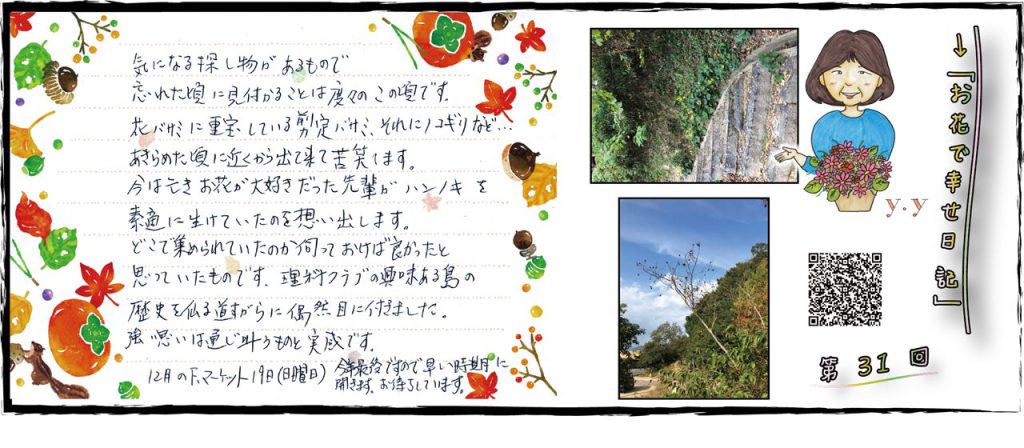 気になる探し物があるもので
忘れた頃に見付かることは度々のこの頃です。
花バサミに重宝している剪定バサミ、それにノコギリなど…
あきらめた頃に近くから出て来て苦笑します。
今は亡きお花が大好きだった先輩がハンノキを
素適に生けていたのを想い出します。
どこで集められていたのか伺っておけば良かったと
思っていたものです、理科クラブの興味ある島の
歴史を仏る道すがらに偶然目に付きました。
強い思いは通じ叶うものと実感です。
12月のF.マーケット19日(日曜日)
今年最後ですので早い時期に
開きます、お待ちしています。
→「お花で幸せ日記」
y.y
第31回